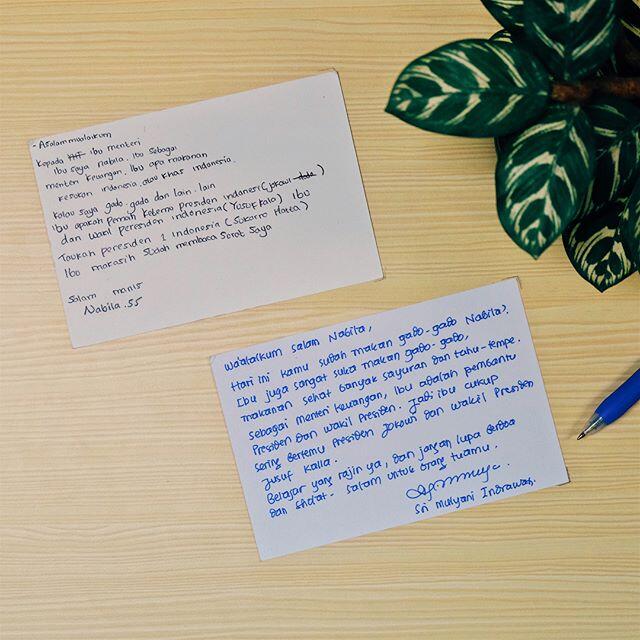 - Asalammualaikum
Kepada ibu menteri
ibu saya Nabila. ibu sebagai
menteri keuangan. ibu apa makanan
kesukan indonesia. atau khas indonesia.
kalau saya gado-gado dan lain-lain
ibu apakah Pernah ketemu Presiden indonesi (jokowi)
dan wakil Peresiden indonesia (Yusuf kala) ibu
Taukah peresiden 1 indonesia (Sukarno Hatta)
ibu makasih sudah membaca Surat saya
Salam manis
Nabila.55
Wa'alaikum salam Nabila,
Hari ini kamu sudah makan gado-gado Nabila?
Ibu juga sangat suka makan gado-gado,
makanan sehat banyak sayuran dan tahu-tempe.
Sebagai menteri keuangan, Ibu adalah pembantu
Presiden dan wakil Presiden. Jadi ibu cukup
sering bertemu Presiden Jokowi dan wakil Presiden
Jusuf Kalla.
Belajar yang rajin ya, dan jangan lupa berdoa
dan sholat. Salam untuk orang tuamu.
Sri Mulyani Indrawati